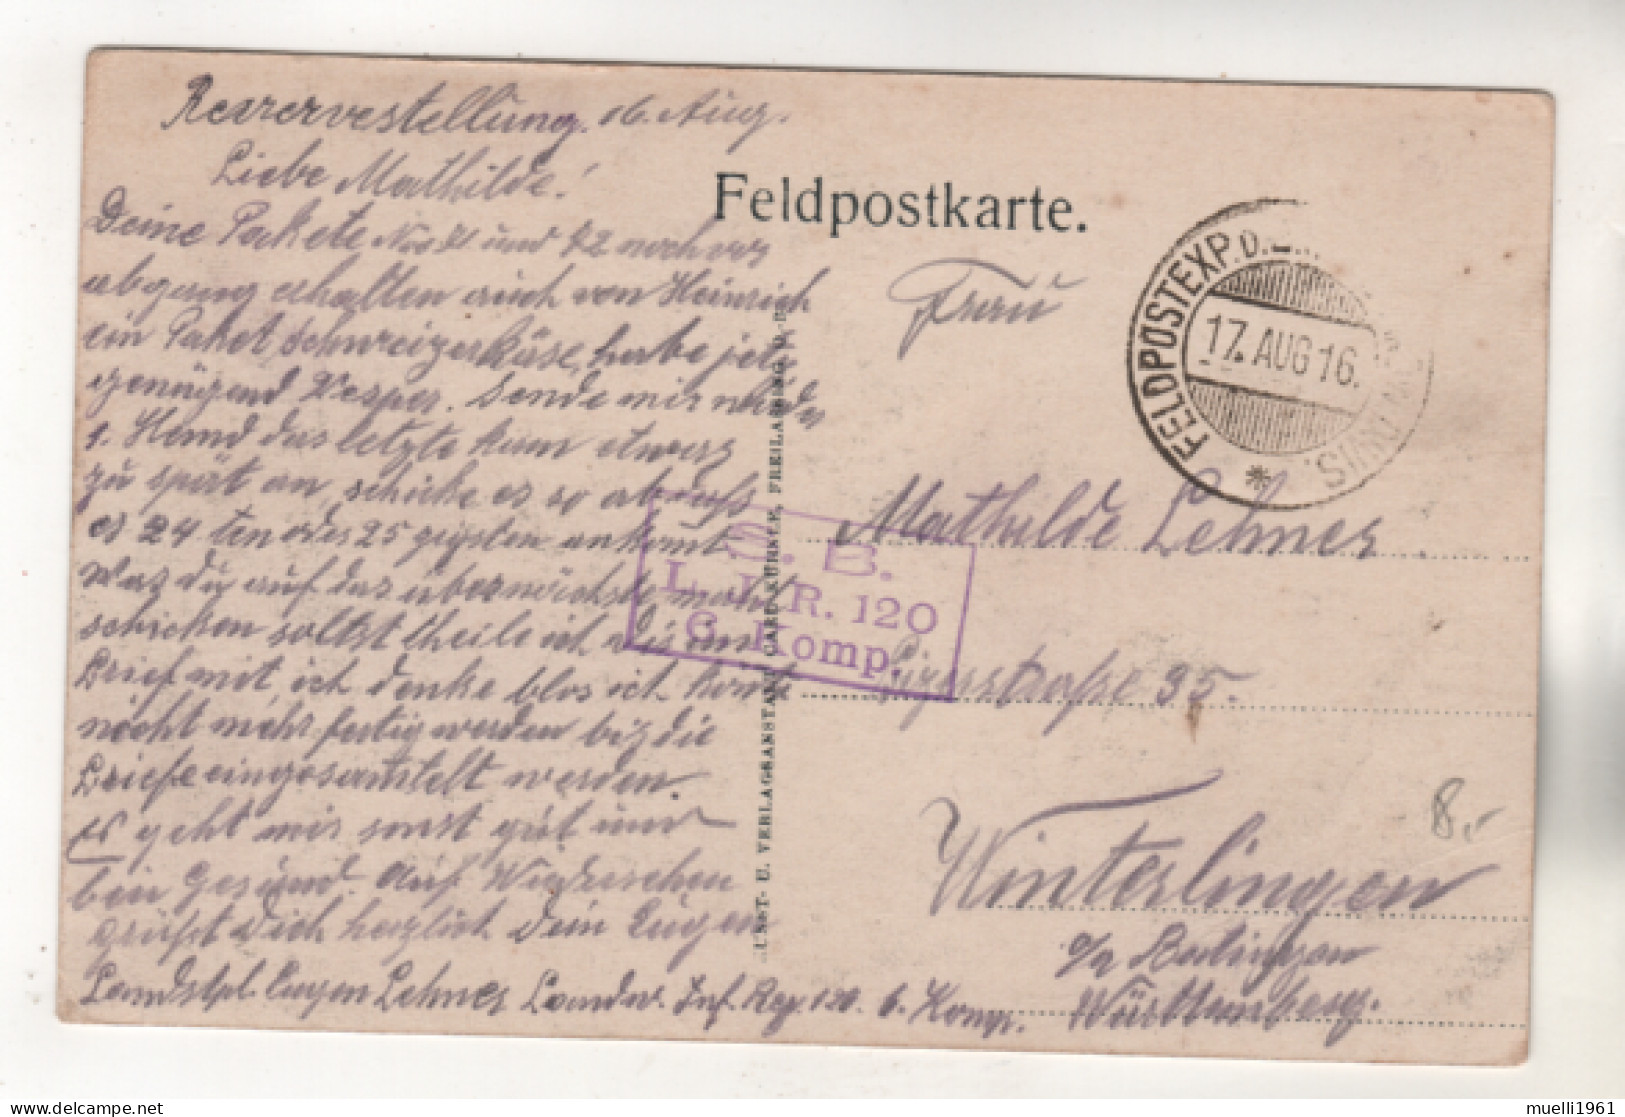 Reservestellung. 16. Aug.
Liebe Mathilde!
Deine Pakete No 71 und 72 noch vor
abgang erhalten auch von Heinrich
ein Paket Schweizerkäse, habe jetz
genügend Vesper. Sende mir wieder
1. Hemd das letzte kam etwas
zu spät an, schicke es so ab dass
es 24 ten oder 25 gigsten ankomt.
Was du auf das übernächste mahl
schicken sollst theile ich dir im
Brief mit, ich denke blos ich kome
nicht mehr fertig werden biz die
Briefe eingesamstelt werden.
Es geht mir sonst gut und
bin Gesund. Auf Wiedersehen
grüsst Dich herzlich Dein Eugen
Landstpl. Eugen Lehner Landw. Inf. Reg. 120. 6. Komp.
Feldpostkarte.
FELDPOSTEXP. D.
17. AUG 16.
Frau
Mathilde Lehner
S. B.
L. I. R. 120
6. Komp.
strasse 35.
Winterlingen
o/a Balingen
Württemberg.
8.-
KUNST- U. VERLAGSANSTALT CARL KÜHSTLE, FREILASSING, O.-B.
muelli1961